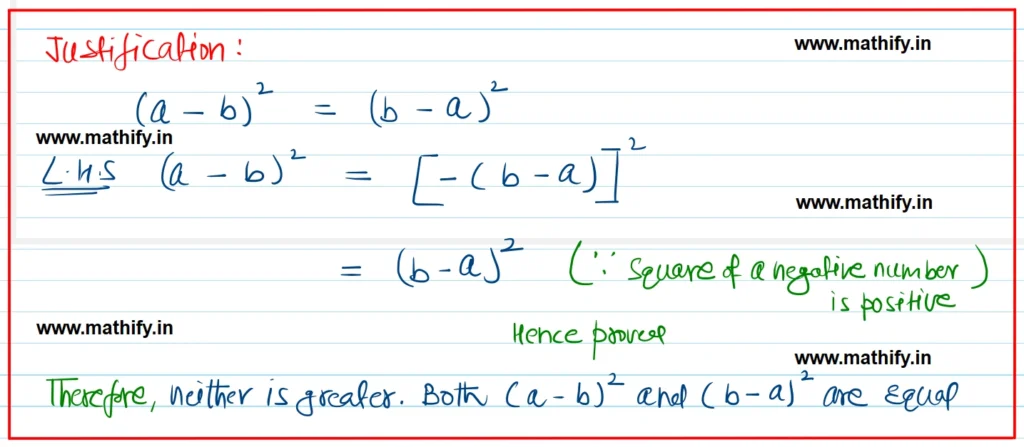 Justification:
www.mathify.in
(a - b)² = (b - a)²
www.mathify.in
L.H.S (a - b)² = [-(b - a)]²
www.mathify.in
= (b - a)² (∵ square of a negative number is positive)
www.mathify.in
Hence proved
www.mathify.in
Therefore, neither is greater. Both (a - b)² and (b - a)² are equal